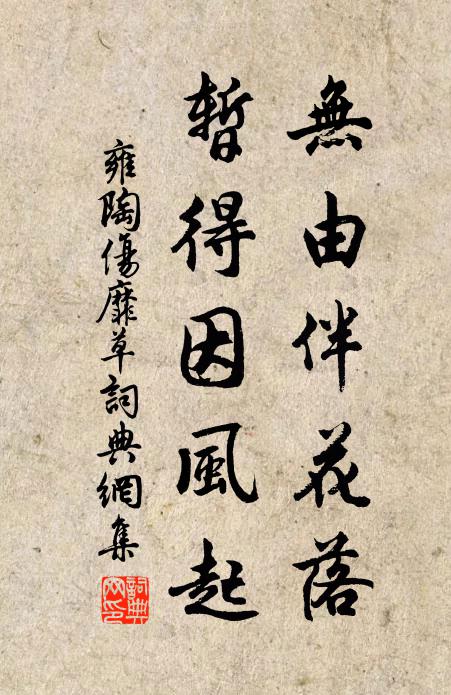 無由伴花落
暫得因風起
雍陶傷靡草詞典網集
詞典網印